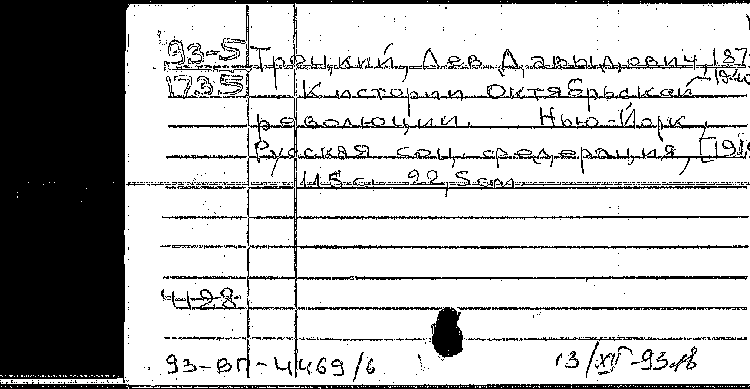 93-5 Троцкий, Лев Давыдович, 187
1735 К истории Октябрьской -1940
революции. Нью-Йорк,
Русская соц. федерация, [191
115 с. 22,5 см
4128
93-ВП-4469/6 13/XII-93